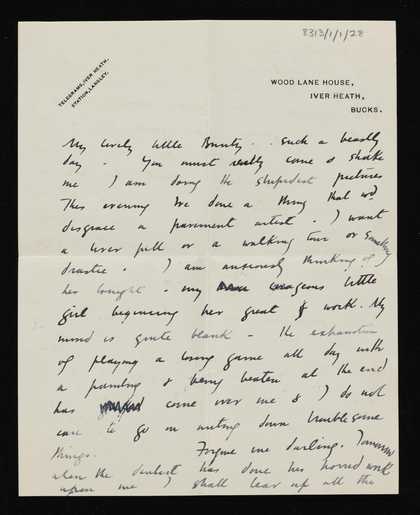 8313/1/1/28
TELEGRAMS, IVER HEATH.
STATION, LANGLEY.
WOOD LANE HOUSE,
IVER HEATH,
BUCKS.
My lovely little Bunty . . Such a beastly
day . You must really come & shake
me I am doing the stupidest pictures
This evening I've done a thing that wd
disgrace a pavement artist . I want
a liver pill or a walking tour or something
drastic . I am anxiously thinking of
her tonight - my courageous little
girl beginning her great & work. My
mind is quite blank - the exhaustion
of playing a losing game all day with
a painting & being beaten at the end
has come over me & I do not
care to go on writing down troublesome
things. Forgive me darling. Tomorrow
when the dentist has done his horrid work
upon me I shall tear up all the